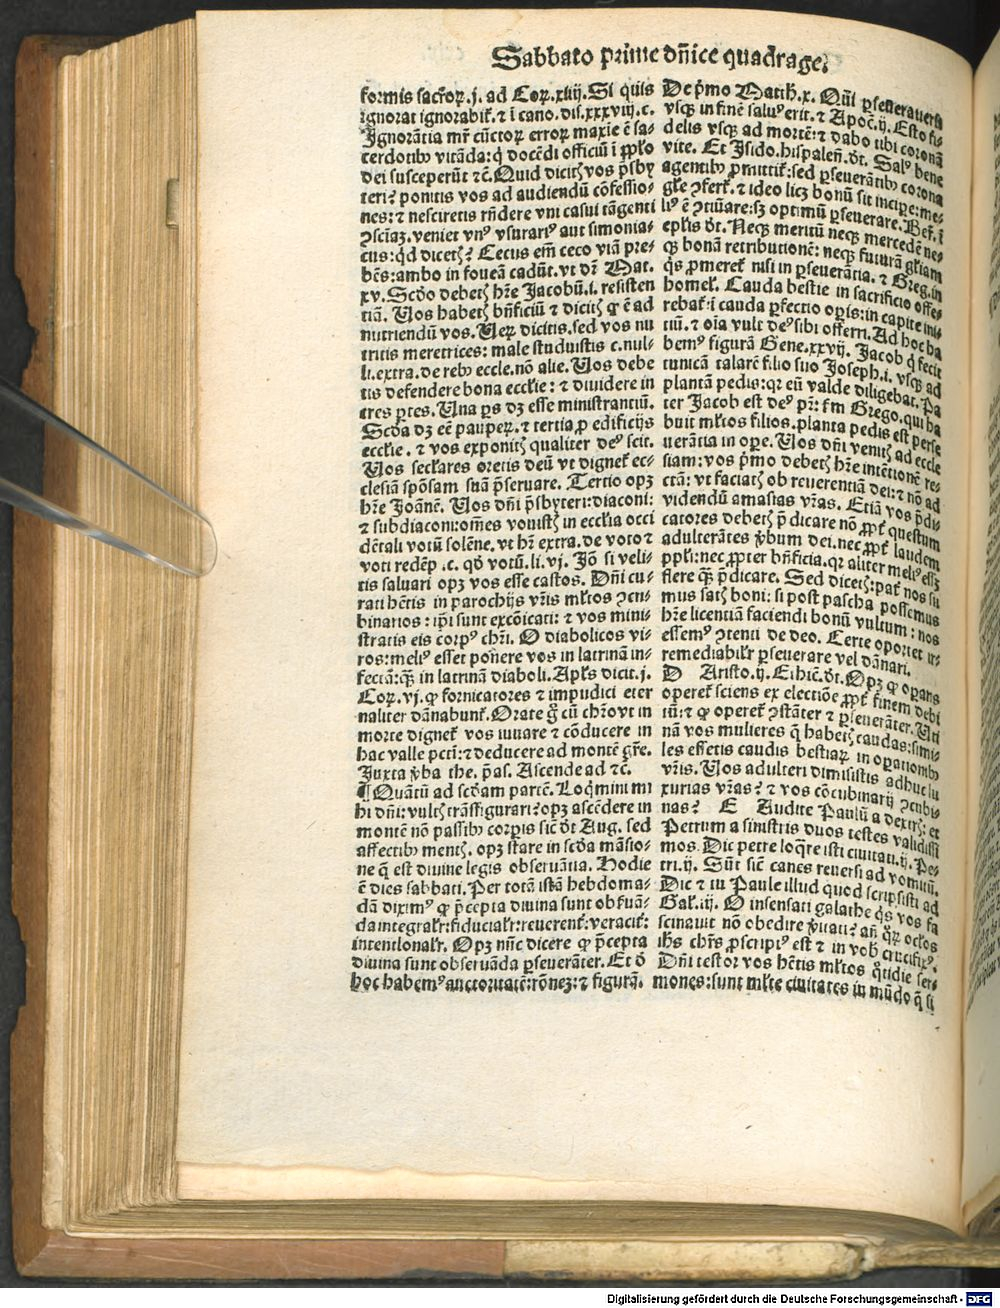 Sabbato prime dñice quadrage.
formis sacroꝝ.j. ad Coꝝ.xiiij. Si quis
ignorat ignorabit̃. ⁊ ĩ cano. dis.xxxviij.c.
Ignorãtia mr̃ cũctoꝝ erroꝝ maxie ẽ sa⸗
cerdotibꝰ vitãda: q̇ docẽdi officiũ ĩ ꝓplo
dei susceperũt ⁊c̃. Quid dicitꝭ vos p̃sby
teri? ponitis vos ad audiendũ cõfessio⸗
nes: ⁊ nesciretis rñdere vni casui tãgenti
ↄsciaʒ. veniet vnꝰ vsurariꝰ aut simonia⸗
cus: qd dicetꝭ? Cecus em̃ ceco viã pre⸗
bẽs: ambo in foueã cadũt. vt dr̃ Mat.
xv. Scd̃o debetꝭ hr̃e Jacobũ.i. resisten
tiã. Uos habetꝭ bñficiũ ⁊ dicitꝭ ꝙ ẽ ad
nutriendũ vos. Ueꝝ dicitis. sed vos nu
tritis meretrices: male studuistis c. nul⸗
li. extra. de rebꝰ eccle. nõ alie. Uos debe
tis defendere bona ecclie: ⁊ diuidere in
tres ꝑtes. Una ꝑs dʒ esse ministrantiũ.
Scd̃a dʒ eẽ paupeꝝ. ⁊ tertia ꝓ edificijs
ecclie. ⁊ vos exponitꝭ qualiter deꝰ scit.
Uos seclares oretis deũ vt dignet̃ ec⸗
clesiã spõsam suã p̃seruare. Tertio opʒ
hr̃e Joãnẽ. Uos dñi p̃sbyteri: diaconi:
⁊ subdiaconi: oẽs vouistꝭ in ecclia occi
dẽtali votũ solẽne. vt hr̃ extra. de voto ⁊
voti redẽp.c. qd̃ votũ. li. vj. Jõ si veli⸗
tis saluari opʒ vos esse castos. Dñi cu⸗
rati hẽtis in parochijs vr̃is ml̃tos ↄcu⸗
binarios: ip̃i sunt excõicati: ⁊ vos mini⸗
stratis eis corpꝰ chr̃i. O diabolicos vi⸗
ros: meliꝰ esset ponere vos in latrinã in⸗
fectã: q̃ʒ in latrinã diaboli. Apl̃s dicit. j.
Coꝝ. vj. ꝙ fornicatores ⁊ impudici eter
naliter dãnabunt̃. Orate g̃ cũ chr̃o vt in
morte dignet̃ vos iuuare ⁊ cõducere in
hac valle pcti: ⁊ deducere ad montẽ gr̃e.
Juxta ṽba the. p̃as. Ascende ad ⁊c̃.
¶ Quãtũ ad scd̃am partẽ. Loq̃mini mi
hi dñi: vultꝭ trãsfigurari? opʒ ascẽdere in
montẽ nõ passibꝰ corpis sic̃ dt̃ Aug. sed
affectibꝰ mentꝭ. opʒ stare in scd̃a mãsio⸗
ne q̃ est diuine legis obseruãtia. Hodie
ẽ dies sabbati. Per totã istã hebdoma⸗
dã diximꝰ ꝙ p̃cepta diuina sunt obseruã⸗
da integral̃r: fiducial̃r: reuerent̃: veracit̃:
intentional̃r. Opʒ nũc dicere ꝙ p̃cepta
diuina sunt obseruãda ꝑseuerãter. Et õ
hoc habemꝰ auctoritatẽ: rõneʒ: ⁊ figurã.
De p̃mo Matth̃. x. Qui ꝑseuerauerit
vsqʒ in finẽ saluꝰ erit. ⁊ Apoc̃. ij. Esto fi⸗
delis vsqʒ ad mortẽ: ⁊ dabo tibi coronã
vite. Et Jsido. hispaleñ. dt̃. Salꝰ bene
agentibꝰ ꝓmittit̃: sed ꝑseuerãtibꝰ corona
gl̃e ↄfert̃. ⁊ ideo licʒ bonũ sit incipe: me⸗
liꝰ ẽ ↄtinuare: sʒ optimũ ꝑseuerare. Ber̃. ĩ
epl̃is dt̃. Neqʒ meritũ neqʒ mercedẽ ne⸗
qʒ bonã retributionẽ: neqʒ futurã gl̃iam
q̇s ꝓmeret̃ nisi in ꝑseuerãtia. ⁊ Greg. in
homel̃. Cauda bestie in sacrificio offe⸗
rebat̃: i cauda ꝑfectio opis: in capite ini⸗
tiũ. ⁊ oĩa vult deꝰ sibi offerri. Ad hoc ha
bemꝰ figurã Gene. xxvij. Jacob q̇ fecit
tunicã talarẽ filio suo Joseph. i. vsqʒ ad
plantã pedis: qꝛ eũ valde diligebat. Pa
ter Jacob est deꝰ pr̃: fm Grego. qui ha
buit ml̃tos filios. planta pedis est perse
uerãtia in ope. Uos dñi venitꝭ ad eccle
siam: vos p̃mo debetꝭ hr̃e intẽtionẽ re⸗
ctã: vt faciatꝭ ob reuerentiã dei: ⁊ nõ ad
videndũ amasias vr̃as. Etiã vos p̃di⸗
catores debetꝭ p̃dicare nõ ꝓpt̃ questum
adulterãtes ṽbum dei. nec ꝓpt̃ laudem
ppl̃i: nec ꝓpter bñficia. qꝛ aliter meliꝰ esʒ
flere q̃ʒ p̃dicare. Sed dicetꝭ: pat̃ nos su
mus satꝭ boni: si post pascha possemus
hr̃e licentiã faciendi bonũ vultum: nos
essemꝰ ↄtenti de deo. Certe oportet ir⸗
remediabil̃r ꝑseuerare vel dãnari.
D Aristo. ij. Ethic̃. dt̃. Opʒ ꝙ opans
operet̃ sciens ex electiõe ꝓpt̃ finem debi
tũ: ⁊ ꝙ operet̃ ↄstãter ⁊ ꝑseuerãter. Uti
nã vos mulieres q̃ habetꝭ caudas: simi⸗
les essetis caudis bestiaꝝ in opationibꝰ
vr̃is. Uos adulteri dimisistis adhuc lu
xurias vr̃as? ⁊ vos cõcubinarij ↄcubi⸗
nas? E Audite Paulũ a dextrꝭ: et
Petrum a sinistris duos testes validissi
mos. Dic petre loq̃re isti ciuitati. ij. Pe⸗
tri. ij. Sũt sic̃ canes reuersi ad vomitũ.
Dic ⁊ tu Paule illud quod scripsisti ad
Gal̃. iij. O insensati galathe q̇s vos fa
scinauit nõ obedire ṽitati? añ q̃ꝝ oclos
iħs chr̃s ꝓscriptꝰ est ⁊ in vob̃ crucifixꝰ.
Dñi testor vos hẽtis ml̃tos q̃tidie ser⸗
mones: sunt ml̃te ciuitates in mũdo q̃ si
Digitalisierung gefördert durch die Deutsche Forschungsgemeinschaft - DFG